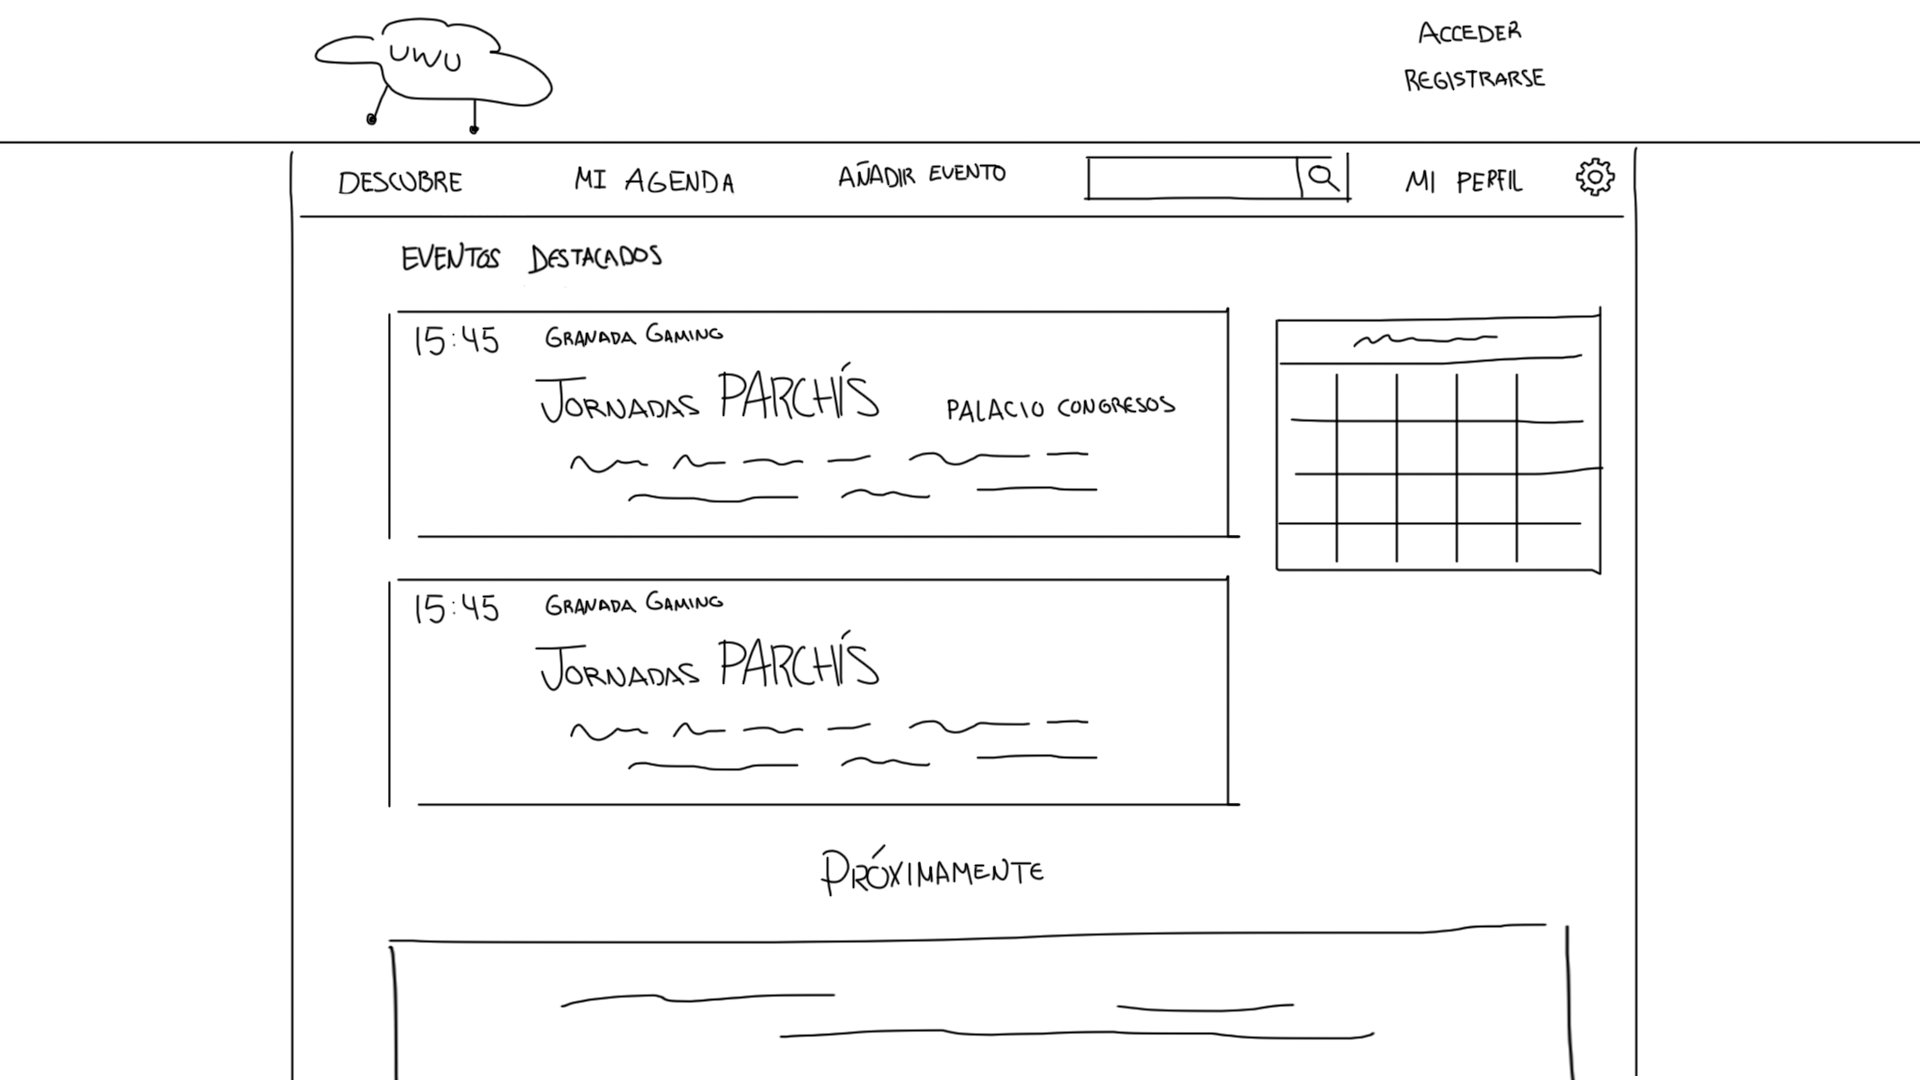 UWU
ACCEDER
REGISTRARSE
DESCUBRE MI AGENDA AÑADIR EVENTO MI PERFIL
EVENTOS DESTACADOS
15:45 GRANADA GAMING
JORNADAS PARCHÍS PALACIO CONGRESOS
15:45 GRANADA GAMING
JORNADAS PARCHÍS
PRÓXIMAMENTE